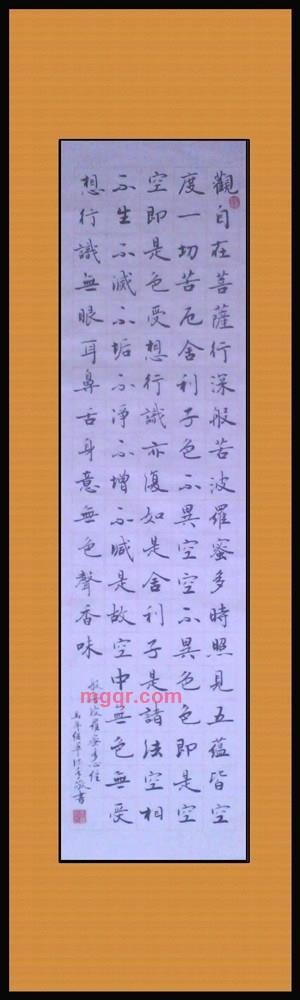 觀自在菩薩行深般若波羅蜜多時照見五蘊皆空
度一切苦厄舍利子色不異空空不異色色即是空
空即是色受想行識亦復如是舍利子是諸法空相
不生不滅不垢不淨不增不減是故空中無色無受
想行識無眼耳鼻舌身意無色聲香味
般若波羅蜜多心經
敬書
mgqr.com